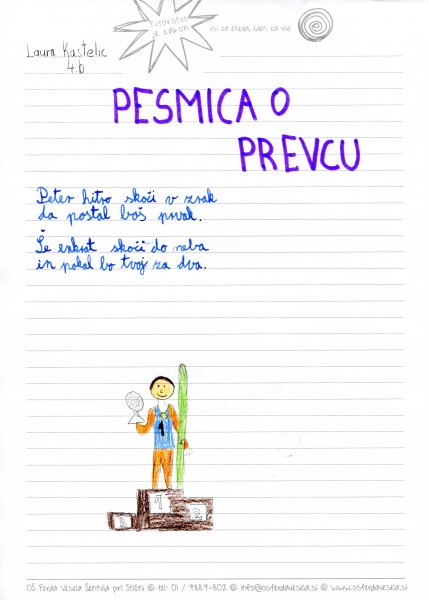 Tutorstvo
je zakon
vsi za enega, eden za vse
Laura Kastelic
4.b
PESMICA O
PREVCU
Peter hitro skoči v zrak
da postal boš prvak.
Še enkrat skoči do neba
in pokal bo tvoj za dva.
1
1
2
3
OŠ Ferda Vesela Šentvid pri Stični © tel: 01 / 7887-802 © info@osferdavesela.si © www.osferdavesela.si